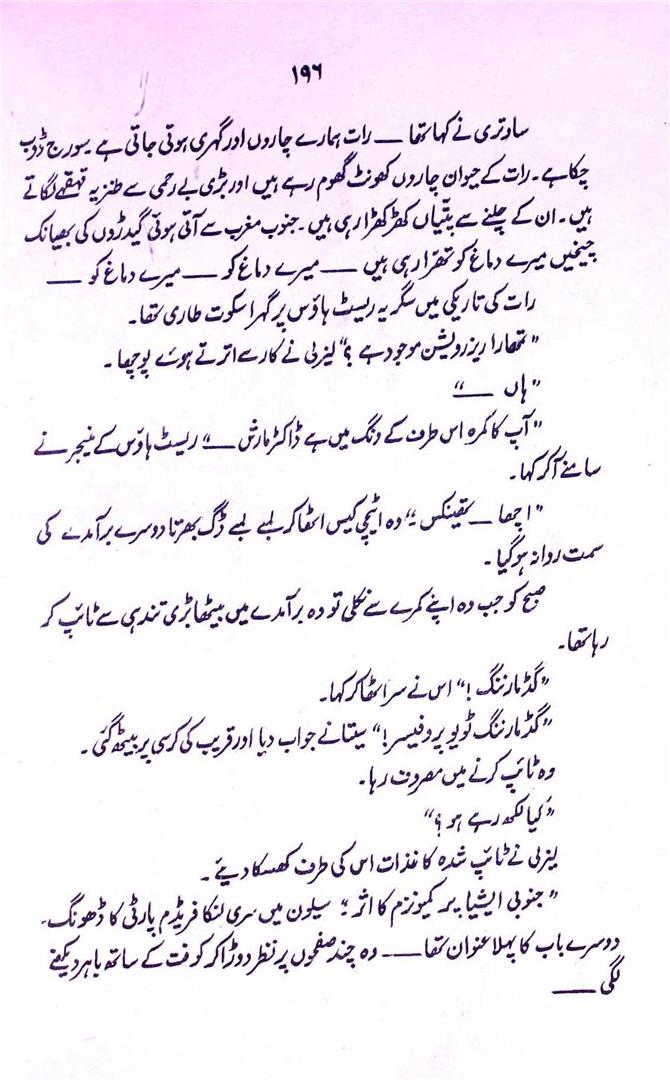 ۱۹۶
ساوتری نے کہا تھا ــــ رات ہمارے چاروں اور گہری ہوتی جاتی ہے۔ سورج ڈوب
چکا ہے۔ رات کے حیوان چاروں کھونٹ گھوم رہے ہیں اور بڑی بے رحمی سے طنزیہ قہقہے لگاتے
ہیں۔ ان کے چلنے سے پتّیاں کھڑکھڑا رہی ہیں۔ جنوب مغرب سے آتی ہوئی گیدڑوں کی بھیانک
چیخیں میرے دماغ کو تھرّا رہی ہیں ــــ میرے دماغ کو ــــ میرے دماغ کو ــــ
رات کی تاریکی میں سگریہ ریسٹ ہاؤس پر گہرا سکوت طاری تھا۔
”تمھارا ریزرویشن موجود ہے؟“ لیزلی نے کار سے اترتے ہوئے پوچھا۔
”ہاں ــــ“
”آپ کا کمرہ اس طرف کے ونگ میں ہے ڈاکٹر مارش ــــ“ ریسٹ ہاؤس کے منیجر نے
سامنے آکر کہا۔
”اچھا ــــ تھینکس۔“ وہ اٹیچی کیس اٹھا کر لمبے لمبے ڈگ بھرتا دوسرے برآمدے کی
سمت روانہ ہوگیا۔
صبح کو جب وہ اپنے کمرے سے نکلی تو وہ برآمدے میں بیٹھا بڑی تندہی سے ٹائپ کر
رہا تھا۔
”گڈ مارننگ!“ اس نے سر اٹھا کر کہا۔
”گڈ مارننگ ٹو یو پروفیسر!“ سیتا نے جواب دیا اور قریب کی کرسی پر بیٹھ گئی۔
وہ ٹائپ کرنے میں مصروف رہا۔
”کیا لکھ رہے ہو؟“
لیزلی نے ٹائپ شدہ کاغذات اس کی طرف کھسکا دیئے۔
”جنوبی ایشیا پر کمیونزم کا اثر۔“ سیلون میں سری لنکا فریڈم پارٹی کا ڈھونگ۔
دوسرے باب کا پہلا عنوان تھا ــــ وہ چند صفحوں پر نظر دوڑا کر کوفت کے ساتھ باہر دیکھنے
لگی ــــ